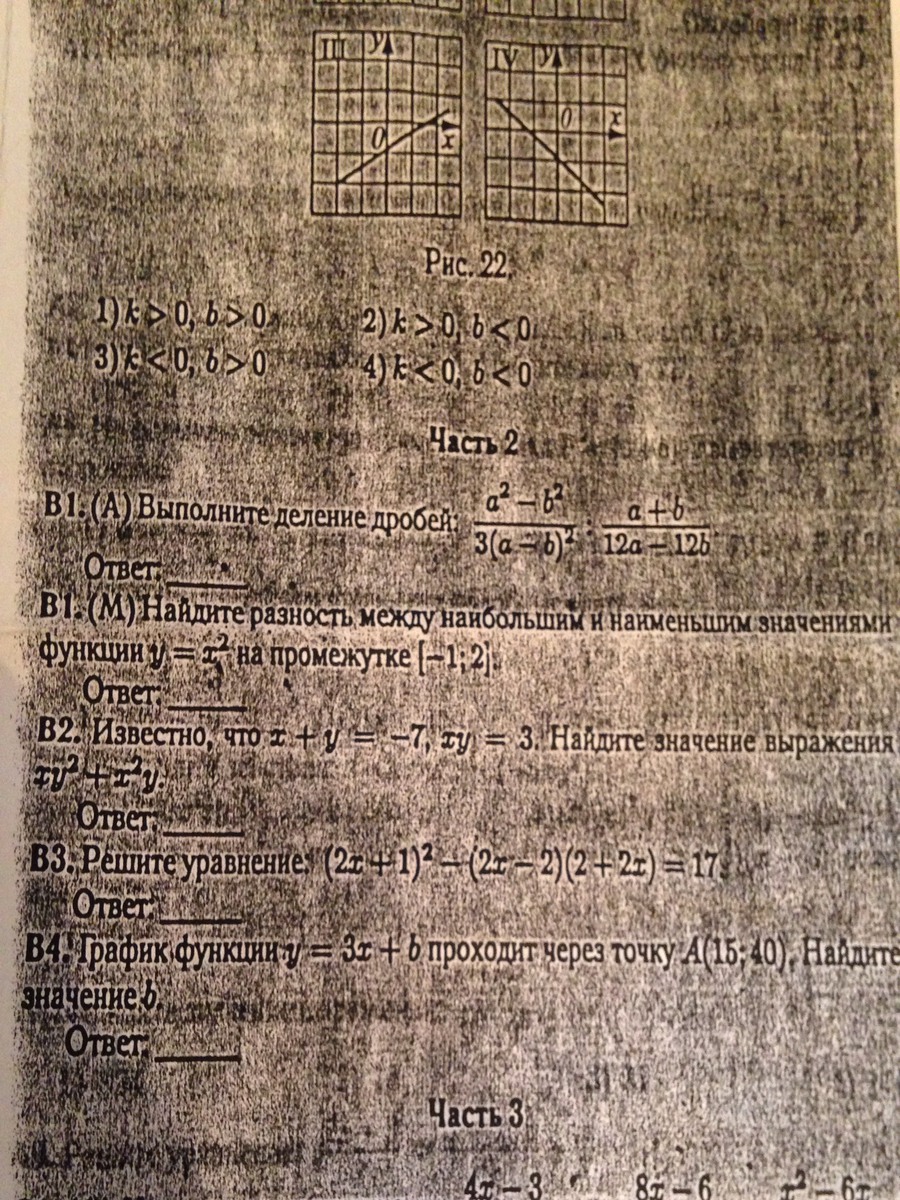 III y IV y
0 x 0 x
Рис. 22.
1) k > 0, b > 0 2) k > 0, b < 0
3) k < 0, b > 0 4) k < 0, b < 0
Часть 2
В1. (А) Выполните деление дробей: (a² − b²)/(3(a − b)²) : (a + b)/(12a − 12b)
Ответ: ____
В1. (М) Найдите разность между наибольшим и наименьшим значениями
функции y = x² на промежутке [−1; 2].
Ответ: ____
В2. Известно, что x + y = −7, xy = 3. Найдите значение выражения
xy² + x²y.
Ответ: ____
В3. Решите уравнение: (2x + 1)² − (2x − 2)(2 + 2x) = 17.
Ответ: ____
В4. График функции y = 3x + b проходит через точку A(15; 40). Найдите
значение b.
Ответ: ____
Часть 3
4x − 3 8x − 6 x² − 6x